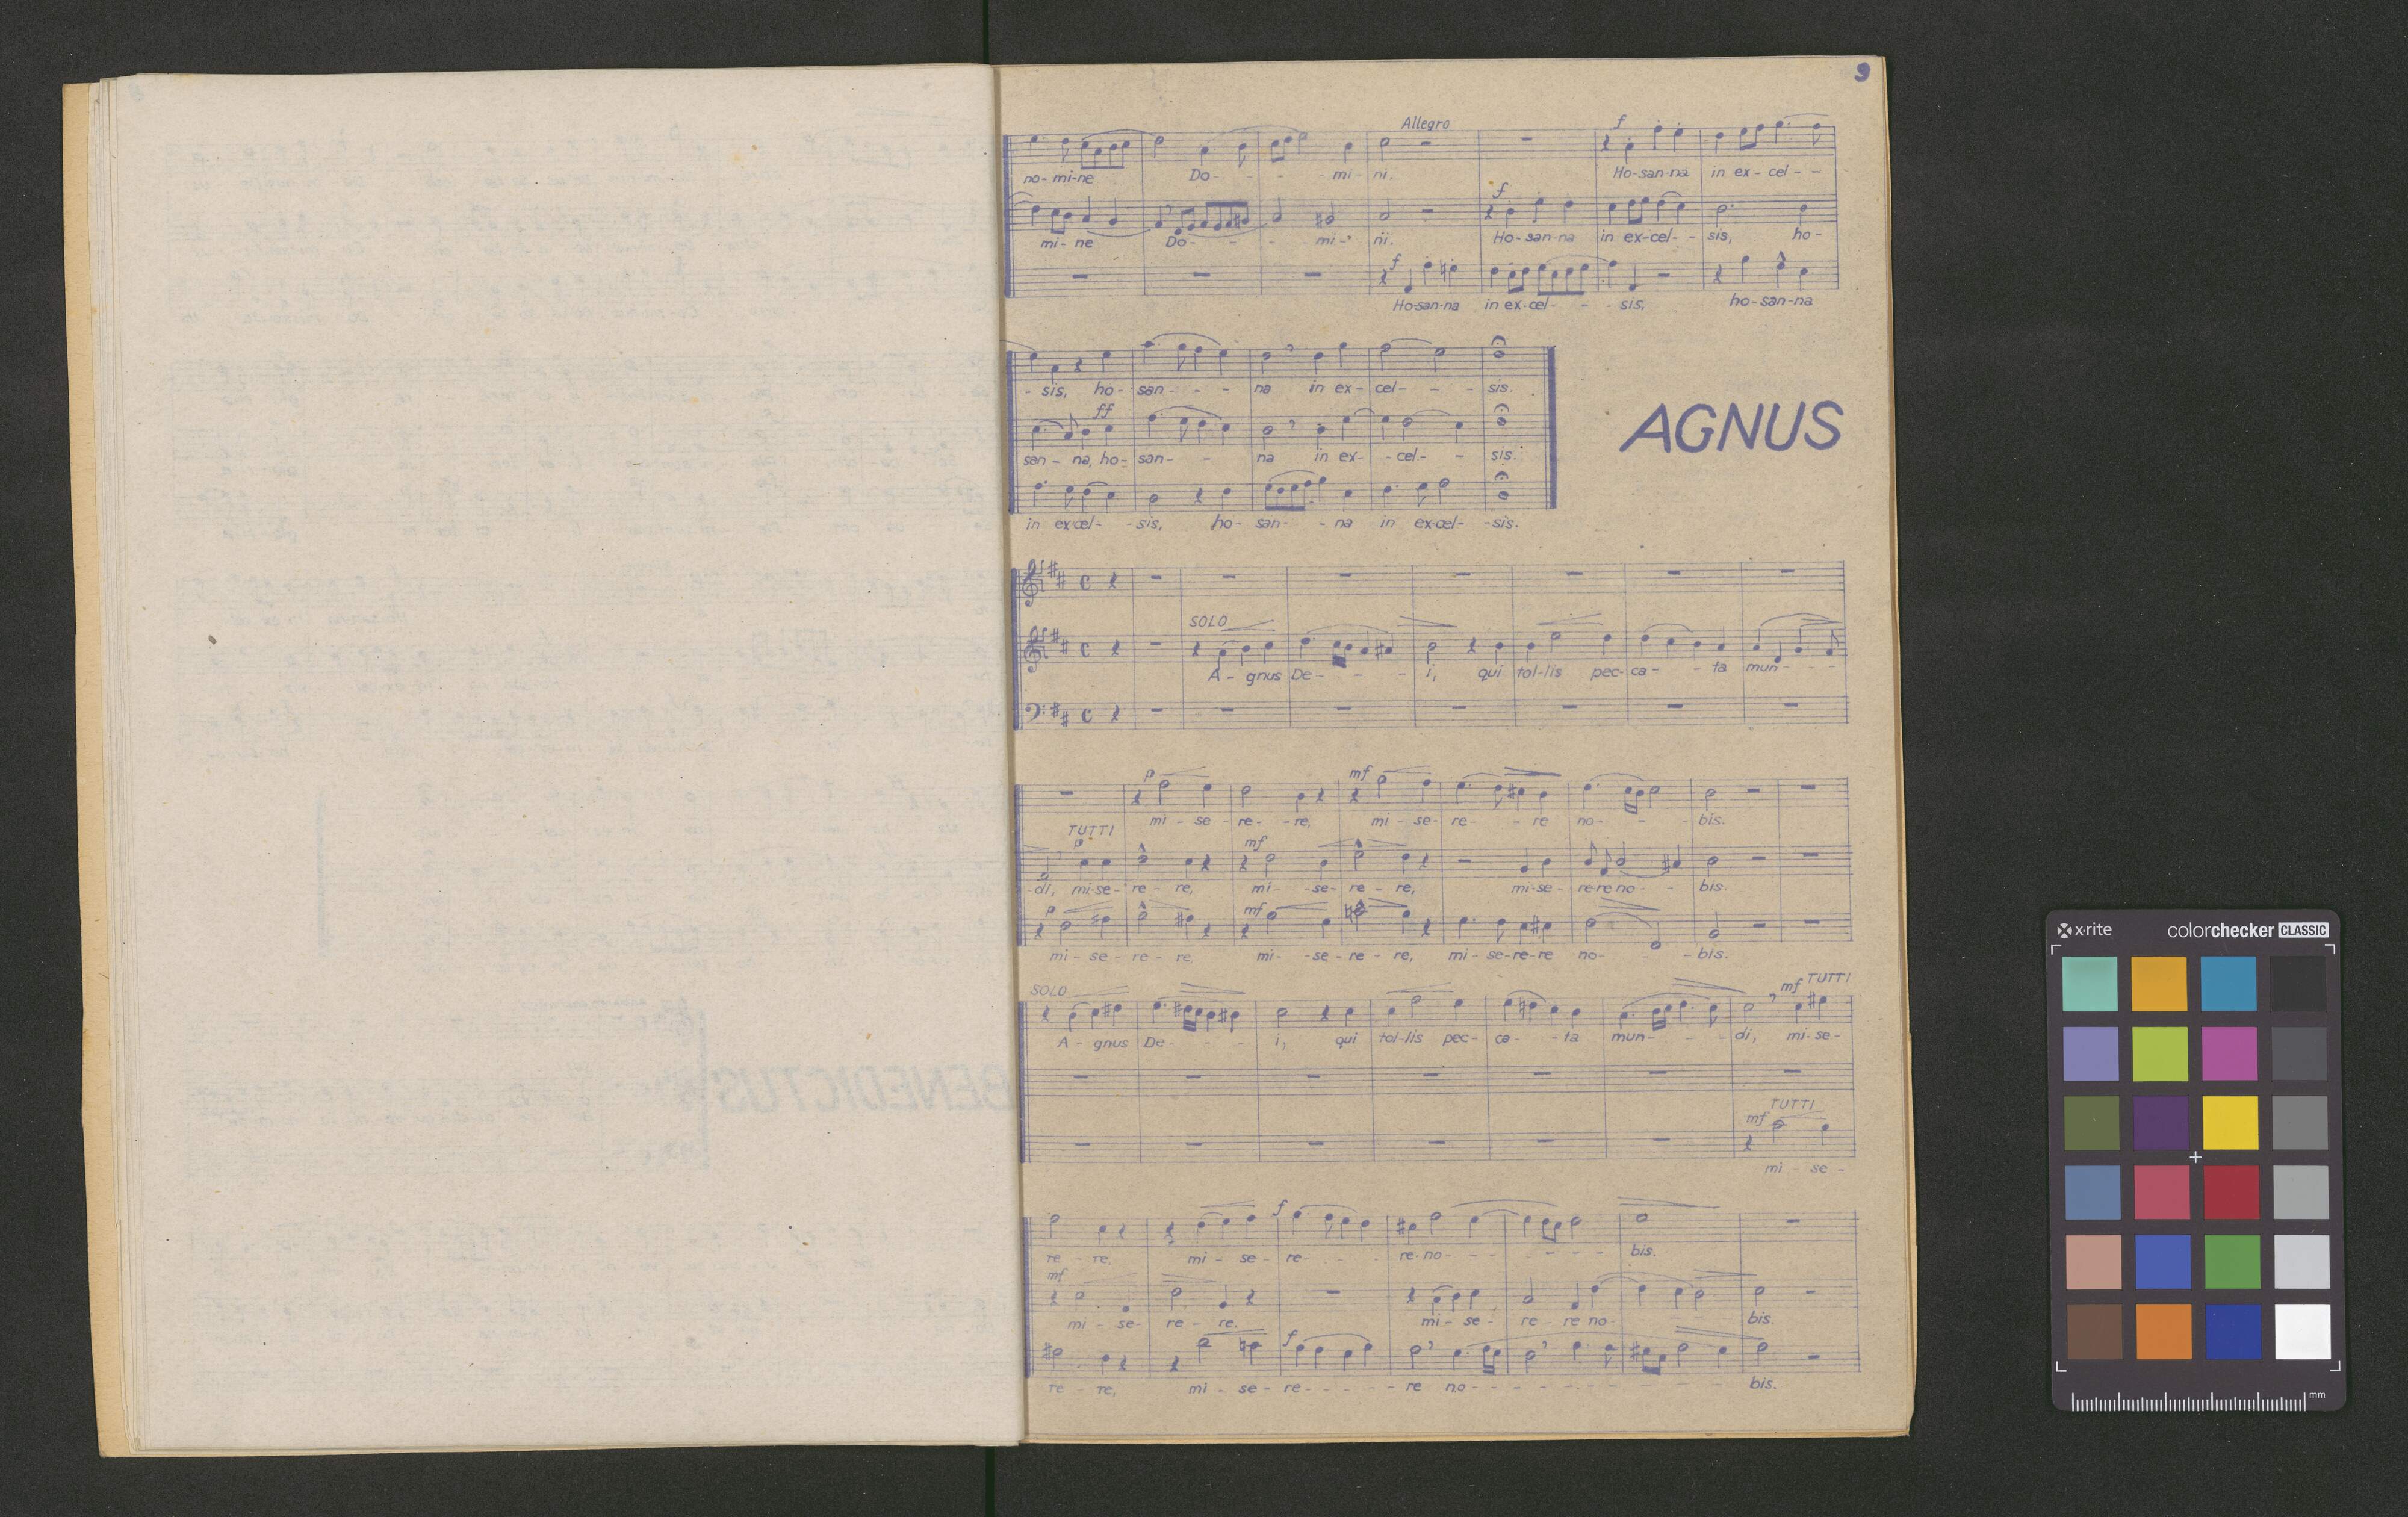 9
Allegro
f
no-mi-ne Do- - - - mi- ni. Ho-san-na in ex-cel- -
f
mi-ne Do- - - - mi- ni. Ho-san-na in ex-cel- - sis, ho-
f
Ho-san-na in ex-cel- - - sis, ho-san-na
- sis, ho- san- - - na in ex- cel- - - sis.
ff
san- na, ho- san- - na in ex- - cel- - sis.
in ex-cel- - sis, ho- san- - na in ex-cel- - sis.
AGNUS
SOLO
A - gnus De- - - - i, qui tol-lis pec-ca- - ta mun- - -
p mf
mi - se - re- -re, mi - se- re- - re no- - - bis.
TUTTI
p mf
-di, mi-se- re- re, mi- -se- re - re, mi-se- re-re no- - bis.
p mf
mi - se - re - re, mi- -se - re - re, mi - se-re-re no- - - bis.
SOLO mf TUTTI
A - gnus De- - - - i, qui tol-lis pec- ca- - ta mun- - - di, mi-se-
TUTTI
mf
mi - se -
f
re - re, mi - se - re- - - re no- - - - - - - bis.
mf
mi - se- re - re. mi - se- re - re no- - - bis.
f
re - re, mi - se - re- - - - re no- - - - - - - - bis.
BENEDICTUS
x·rite colorchecker CLASSIC
mm